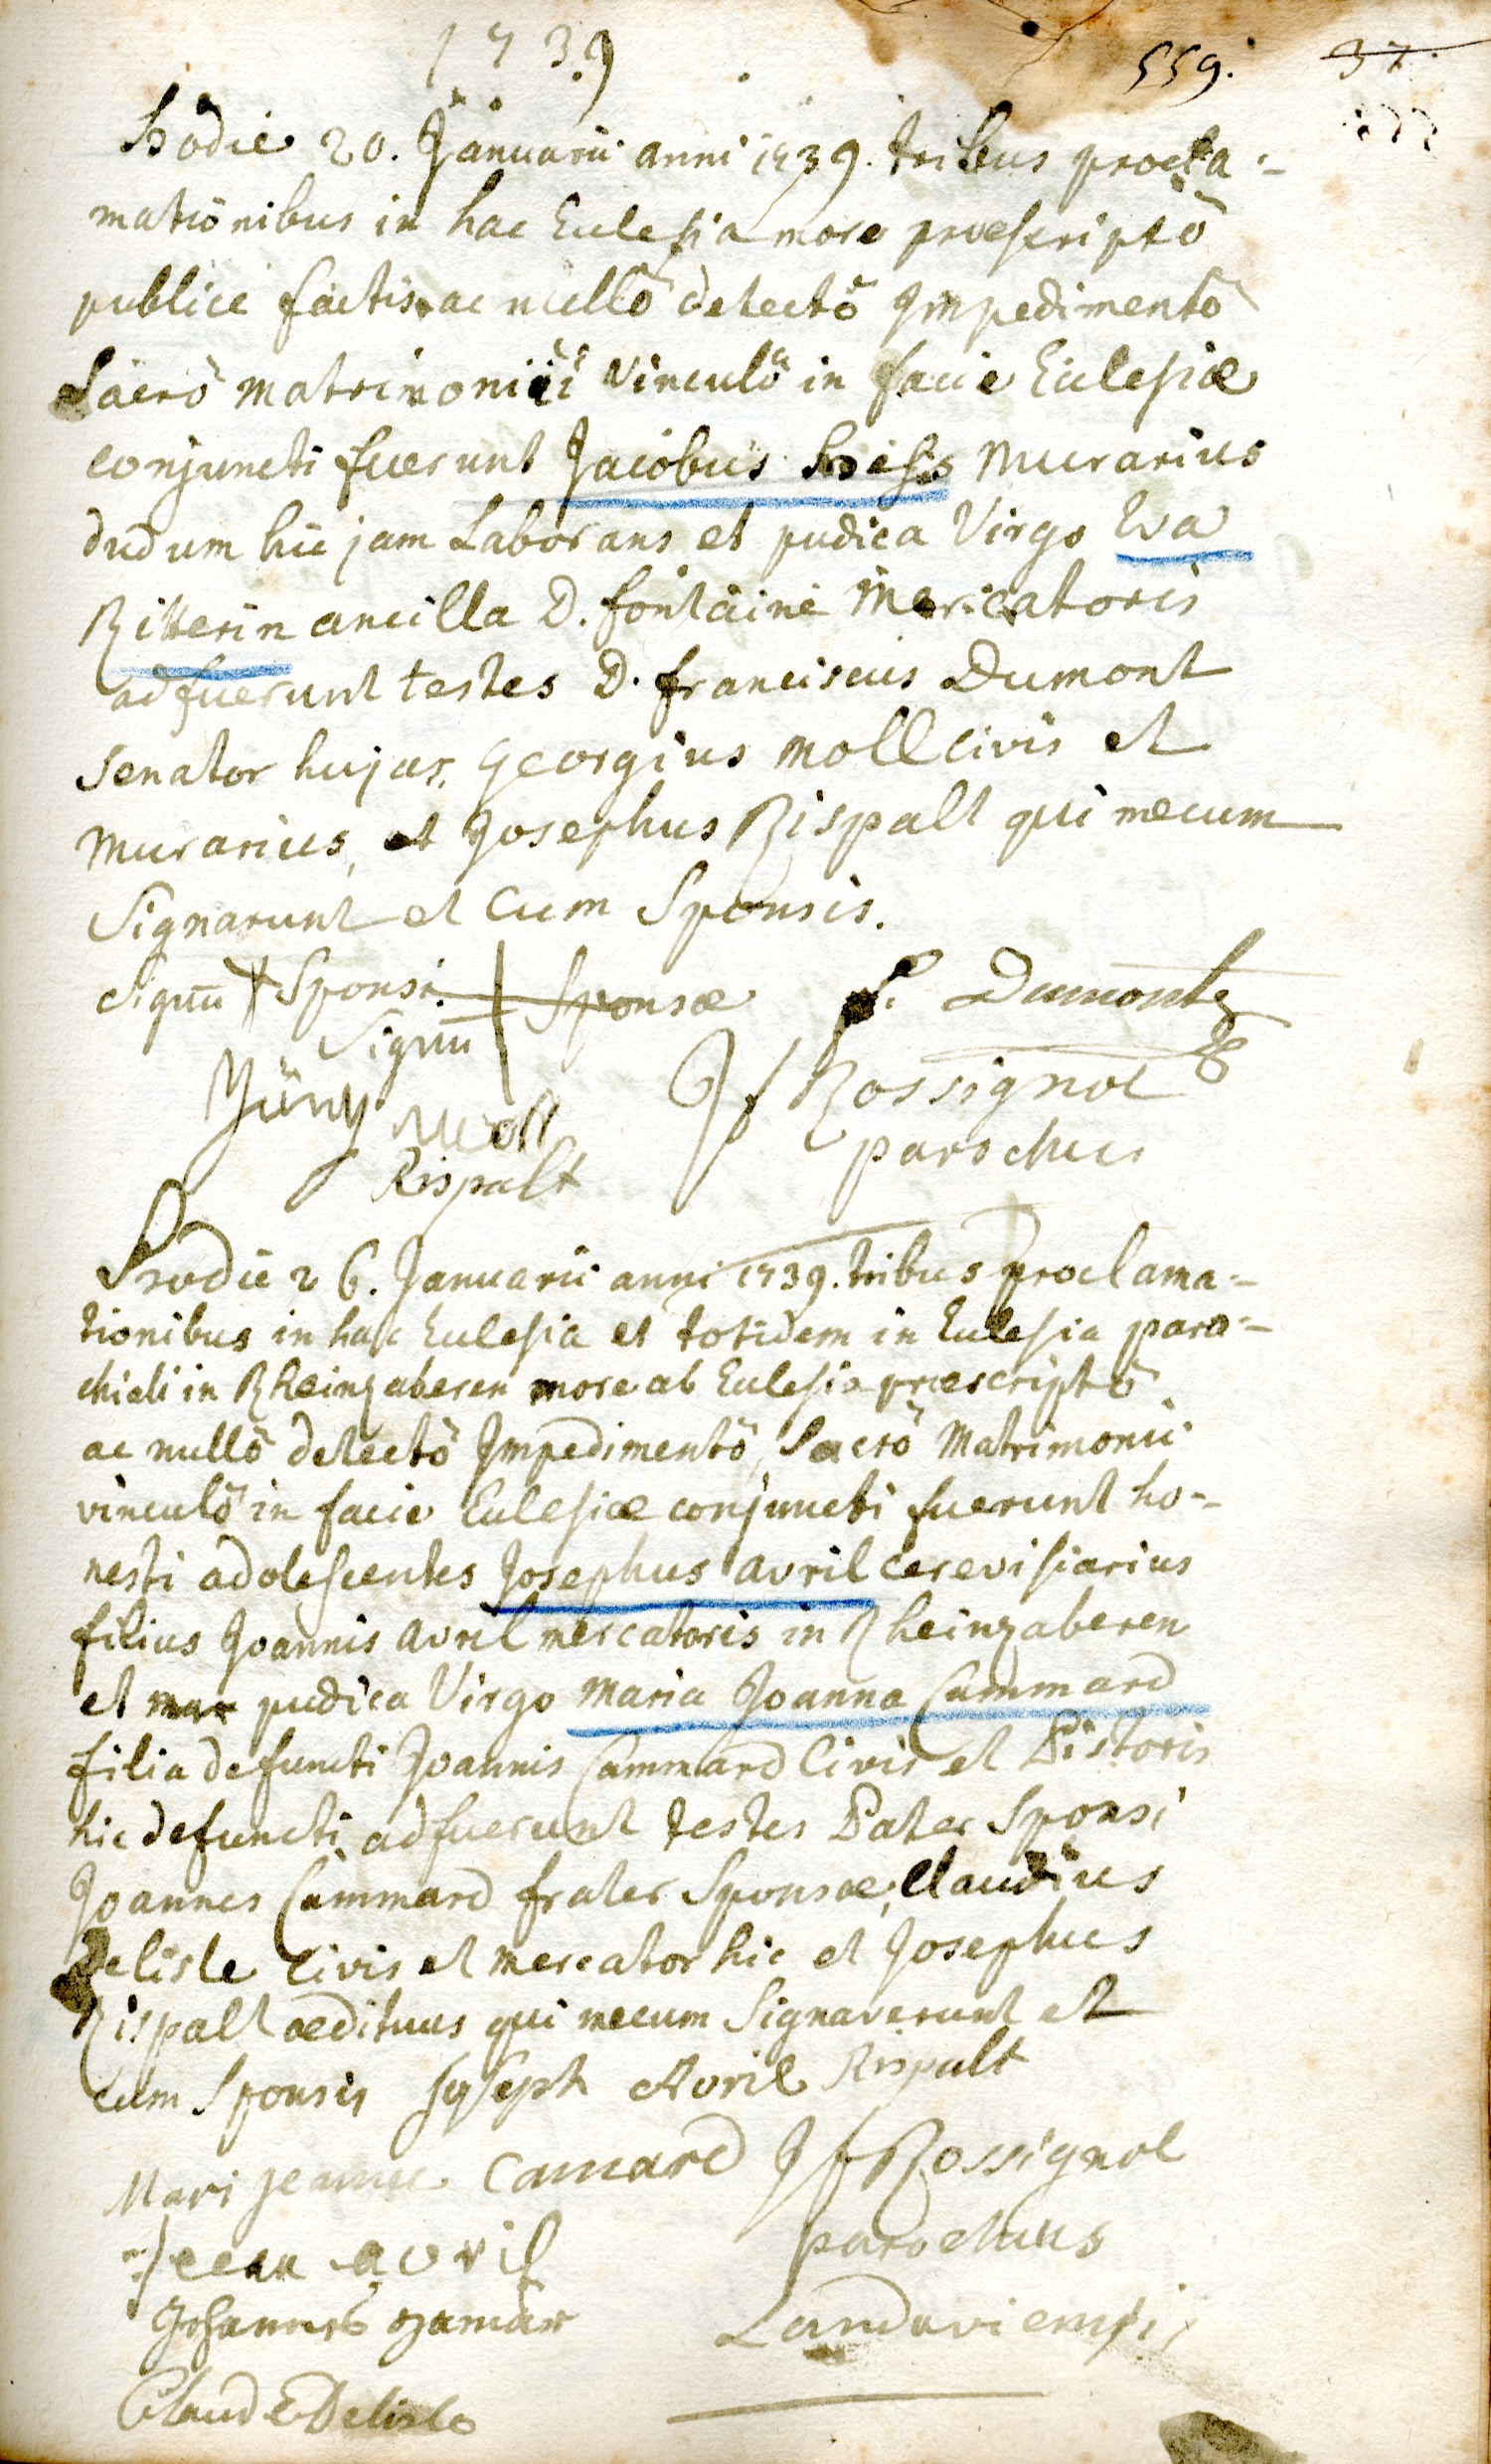 1739
559. 37.
Hodie 20. Januarii anni 1739. tribus procla=
mationibus in hac Eclesia more præscriptô
publice factis, ac nullô detectô Impedimentô
Sacrô Matrimonii Vinculô in facie Eclesiæ
conjuncti fuerunt Jacobus Heiss Murarius
dudum hic jam Laborans et pudica Virgo Eva
Ritterin ancilla D. fontaine Mercatoris
adfuerunt testes D. franciscus Dumont
Senator hujas, Georgius Moll civis et
Murarius, et Josephus Rispalt qui mecum
Signarunt et cum Sponsis.
Signū Sponsi Sponsæ F. Dumont
Signū
Jüng Moll JfRossignol
Rispalt parochus
Hodie 26. Januarii anni 1739. tribus proclama=
tionibus in hac Eclesia et totidem in Eclesia paro=
chiali in Rheinzaberen more ab Eclesia præscriptô
ac nullô detectô Impedimentô, Sacrô Matrimonii
vinculô in facie Eclesiæ conjuncti fuerunt ho=
nesti adolescentes Josephus avril cerevisiarius
filius Joannis avril mercatoris in Rheinzaberen
et pudica Virgo Maria Joanna Cammard
filia defuncti Joannis Cammard Civis et Pistoris
hic defuncti adfuerunt testes Pater Sponsi
Joannes Cammard frater Sponsæ, Claudius
Delisle Civis et mercator hic et Josephus
Rispalt ædituus qui mecum Signaverunt et
cum Sponsis Joseph Avril Rispalt
Mari jeanne Camard JfRossignol
Jean avril parochus
Johannes gamar Landaviensis
Claude Delisle